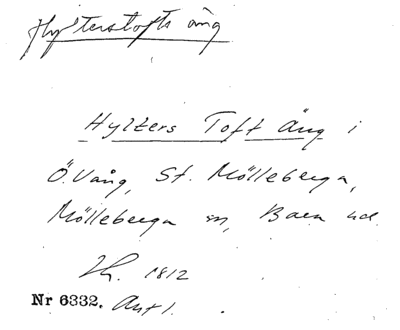 Hylterstofts äng
Hylters Toft Äng i
Ö. Vång, St. Mölleberga,
Mölleberga sn, Bara hd.
Sk. 1812
Nr 6332. Akt 1.